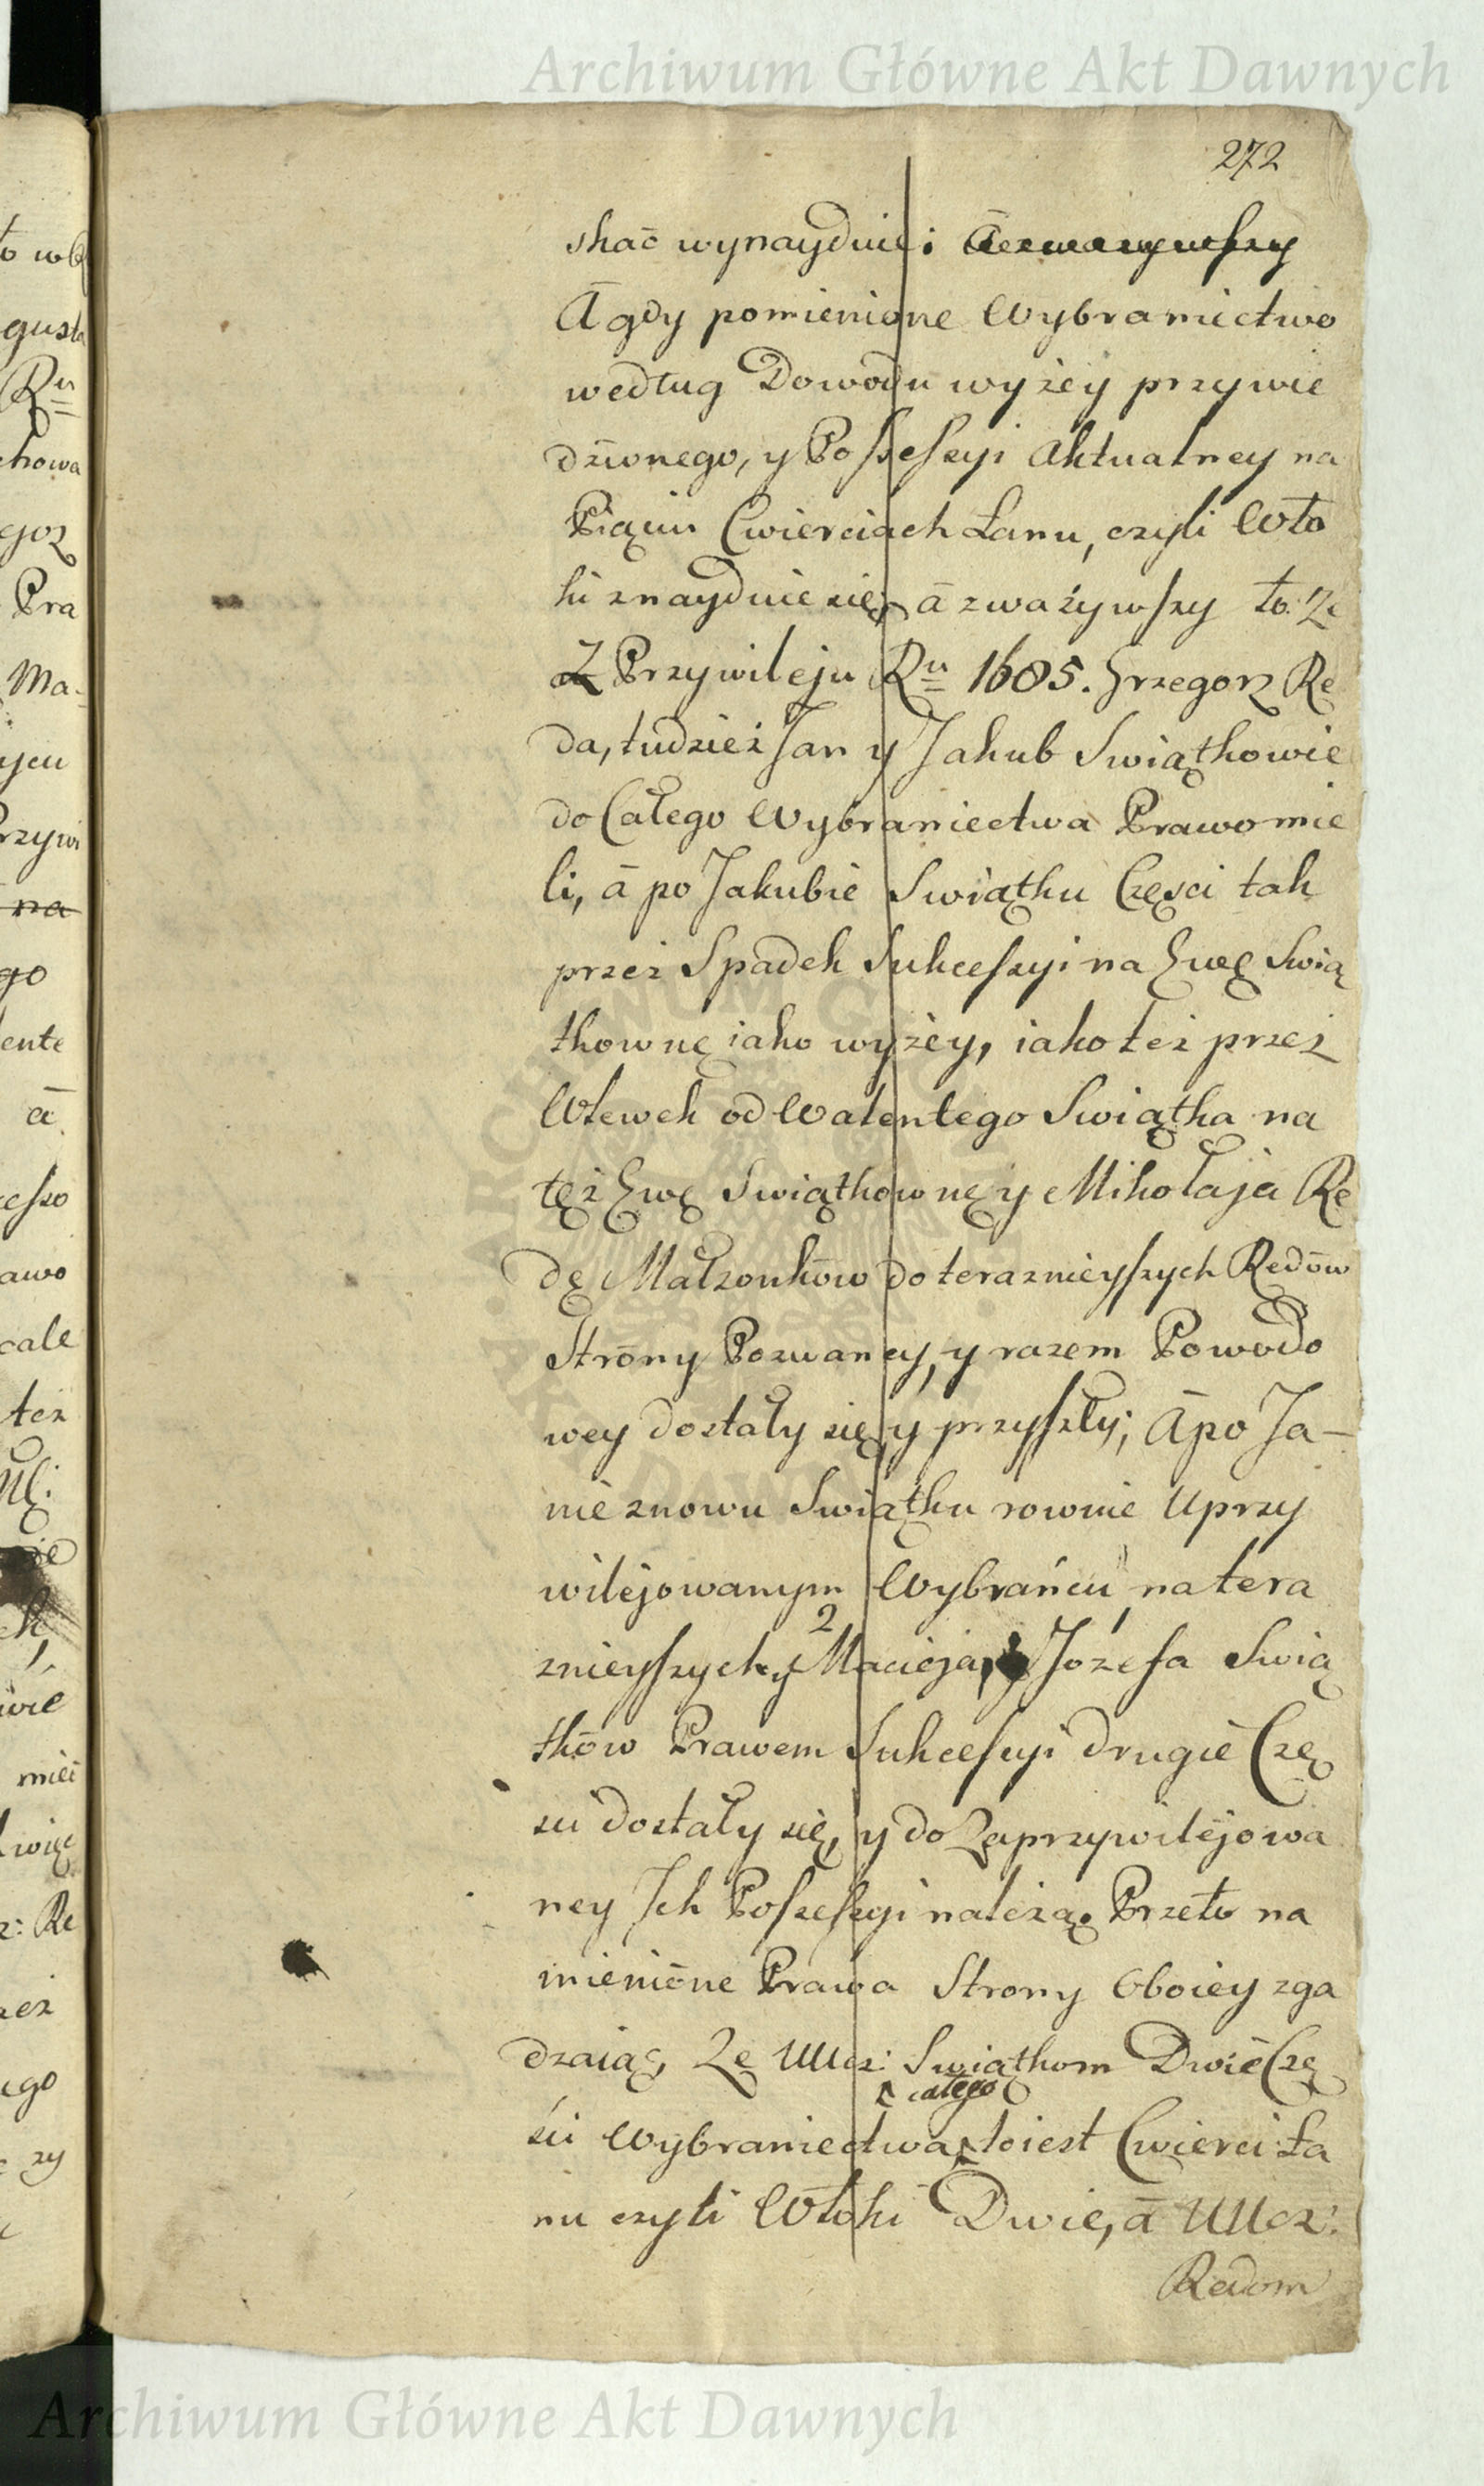 Archiwum Główne Akt Dawnych
272
skać wynayduie; a zwazywszy
A gdy pomienione Wybraniectwo
według Dowodu wyżey przywie
dzionego, y Possessyi Aktualney na
Piąciu Cwierciach Łanu, czyli Wło
ki znayduie się, á zważywszy to: Ze
Z Przywileju Ru 1685. Grzegorz Re
da, tudzież Jan y Jakub Swiątkowie
do Całego Wybraniectwa Prawo mie
li, á po Jakubie Swiątku Części tak
przez Spadek Sukcessyi na Ewę Swią
tkownę iako wyżey, iako też przez
Wlewek od Walentego Swiątka na
tęż Ewę Swiątkownę y Mikołaja Re
dę Małzonków do teraznieyszych Redów
Strony Pozwaney, y razem Powodo
wey dostały się, y przyszły; A po Ja-
nie znowu Swiątku rownie Uprzy
wilejowanym Wybrańcu, na tera
znieyszych y 2 Macieja, y Józefa Swią
tków Prawem Sukcessyi drugie Czę
ści dostały się, y do Zaprzywilejowa
ney Ich Possessyi należą. Przeto na
mienióne Prawa Strony Oboiey zga
dzaiąc, Ze UUcz: Swiątkom Dwie Czę
całego
ści Wybraniectwa to iest Cwierci Ła
nu czyli Włoki Dwie, á UUcz:
Redom
Archiwum Główne Akt Dawnych